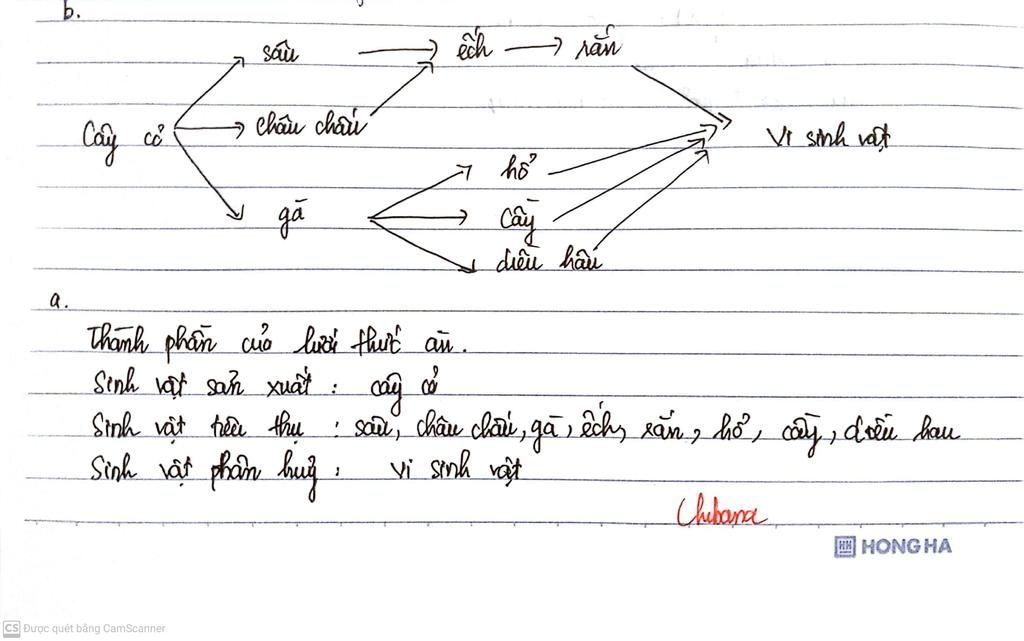 b.
sâu → ếch → rắn
Cây cỏ châu chấu vi sinh vật
hổ
gà cầy
diều hâu
a.
Thành phần của lưới thức ăn.
Sinh vật sản xuất : cây cỏ
Sinh vật tiêu thụ : sâu, châu chấu, gà, ếch, rắn, hổ, cầy, diều hau
Sinh vật phân huỷ : vi sinh vật
Chibana
HONG HA
CS Được quét bằng CamScanner